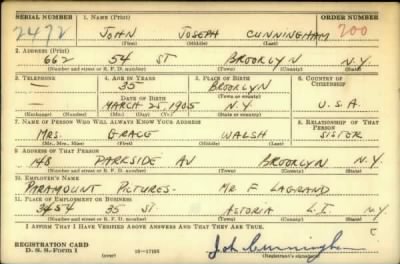 SERIAL NUMBER 1. NAME (Print) ORDER NUMBER
2472 JOHN JOSEPH CUNNINGHAM 200
(First) (Middle) (Last)
2. ADDRESS (Print)
662 54 ST BROOKLYN N.Y.
(Number and street or R. F. D. number) (Town) (County) (State)
3. TELEPHONE 4. AGE IN YEARS 5. PLACE OF BIRTH 6. COUNTRY OF
— 35 BROOKLYN CITIZENSHIP
DATE OF BIRTH (Town or county)
— MARCH 25, 1905 N.Y. U.S.A.
(Exchange) (Number) (Mo.) (Day) (Yr.) (State or country)
7. NAME OF PERSON WHO WILL ALWAYS KNOW YOUR ADDRESS 8. RELATIONSHIP OF THAT
PERSON
MRS. GRACE WALSH SISTER
(Mr., Mrs., Miss) (First) (Middle) (Last)
9. ADDRESS OF THAT PERSON
148 PARKSIDE AV BROOKLYN N.Y.
(Number and street or R. F. D. number) (Town) (County) (State)
10. EMPLOYER'S NAME
PARAMOUNT PICTURES- MR F LAGRAND
11. PLACE OF EMPLOYMENT OR BUSINESS
3454 35 ST ASTORIA L.I. N.Y.
(Number and street or R. F. D. number) (Town) (County) (State)
I AFFIRM THAT I HAVE VERIFIED ABOVE ANSWERS AND THAT THEY ARE TRUE.
REGISTRATION CARD
D. S. S. Form 1 (over) 16—17105 John Cunningham
(Registrant's signature)